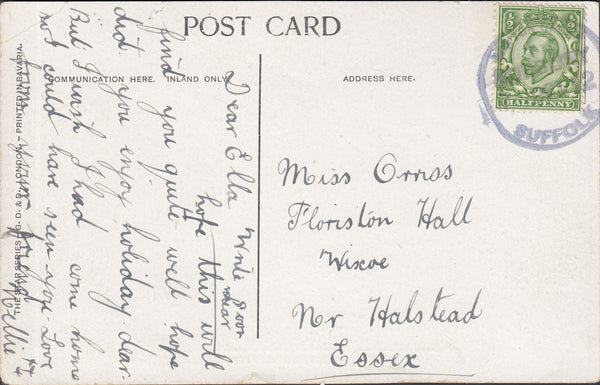 POST CARD
COMMUNICATION HERE. INLAND ONLY.
ADDRESS HERE.
HALFPENNY
SUFFOLK
THE STAR SERIES. G. D. & D., LONDON. — PRINTED IN BAVARIA.
Dear Ella Write soon
dear
hope this will
find you quite well hope
did you enjoy holiday dear.
But I wish I had come home
not could have seen you. Love
from your
Nellie
Miss Orriss
Floriston Hall
Wixoe
Nr Halstead
Essex